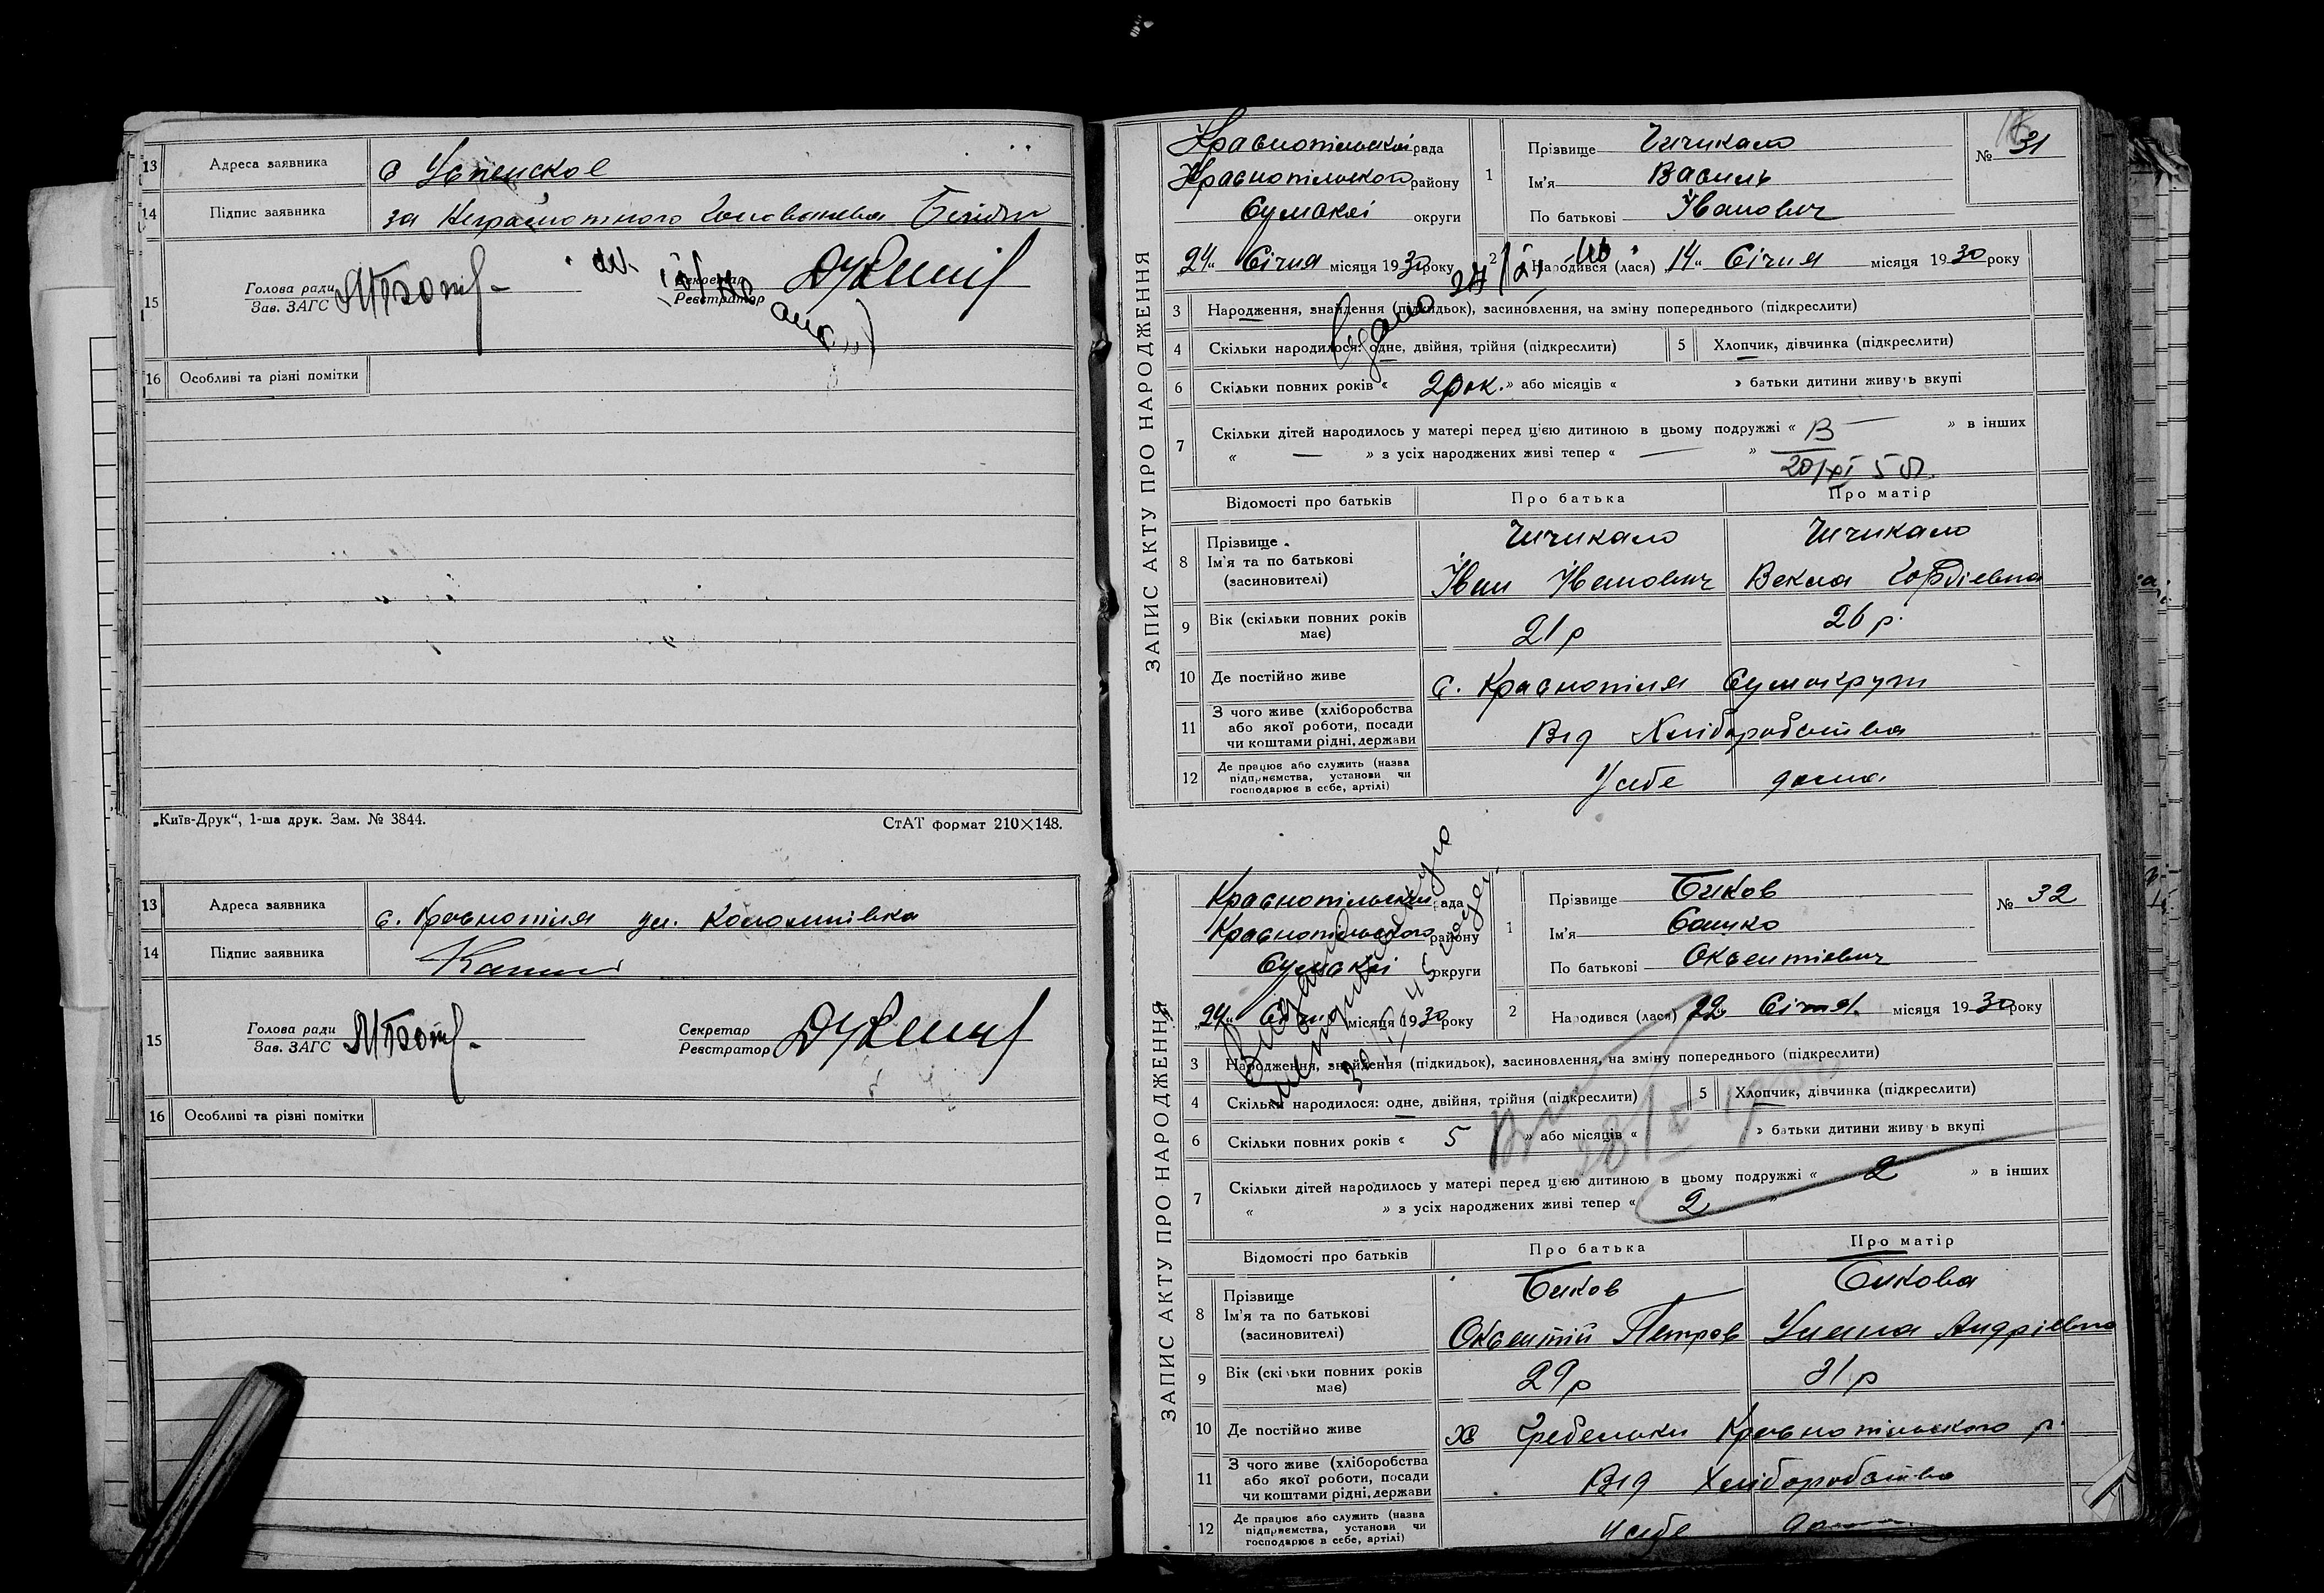 13 Адреса заявника с Успенское
14 Підпис заявника за Неграмотного
15 Голова ради
Зав. ЗАГС
Секретар
Реєстратор
16 Особливі та різні помітки
„Київ-Друк“, 1-ша друк. Зам. № 3844. СтАТ формат 210×148.
13 Адреса заявника с. Краснопілля ул.
14 Підпис заявника
15 Голова ради
Зав. ЗАГС
Секретар
Реєстратор
16 Особливі та різні помітки
ЗАПИС АКТУ ПРО НАРОДЖЕННЯ
Краснопільської рада
Краснопільського району
Сумської округи
„24“ Січня місяця 1930 року
1 Прізвище Чичикало
Ім'я Василь
По батькові Іванович
№ 31
2 Народився (лася) 14“ Січня місяця 1930 року
3 Народження, знайдення (підкидьок), засиновлення, на зміну попереднього (підкреслити)
4 Скільки народилося: одне, двійня, трійня (підкреслити) 5 Хлопчик, дівчинка (підкреслити)
6 Скільки повних років « 2 рок. » або місяців « » батьки дитини живуть вкупі
7 Скільки дітей народилось у матері перед цією дитиною в цьому подружжі « — » в інших
« — » з усіх народжених живі тепер « — »
Відомості про батьків Про батька Про матір
8 Прізвище Чичикало Чичикало
Ім'я та по батькові Іван Іванович Векла Гордієвна
(засиновителі)
9 Вік (скільки повних років має) 21 р 26 р.
10 Де постійно живе с. Краснопілля Сумокруги
11 З чого живе (хліборобства
або якої роботи, посади
чи коштами рідні, держави Від Хліборобства
12 Де працює або служить (назва
підприємства, установи чи
господарює в себе, артілі) У себе дома
ЗАПИС АКТУ ПРО НАРОДЖЕННЯ
Краснопільської рада
Краснопільського району
Сумської округи
„24“ Січня місяця 1930 року
1 Прізвище Биков
Ім'я Сашко
По батькові Оксентієвич
№ 32
2 Народився (лася) 22 Січня місяця 1930 року
3 Народження, знайдення (підкидьок), засиновлення, на зміну попереднього (підкреслити)
4 Скільки народилося: одне, двійня, трійня (підкреслити) 5 Хлопчик, дівчинка (підкреслити)
6 Скільки повних років « 5 » або місяців « » батьки дитини живуть вкупі
7 Скільки дітей народилось у матері перед цією дитиною в цьому подружжі « 2 » в інших
« » з усіх народжених живі тепер « 2 »
Відомості про батьків Про батька Про матір
8 Прізвище Биков Бикова
Ім'я та по батькові Оксентій Петров Уляна Андрієвна
(засиновителі)
9 Вік (скільки повних років має) 29 р 31 р
10 Де постійно живе х Гребельки Краснопільського р.
11 З чого живе (хліборобства
або якої роботи, посади
чи коштами рідні, держави Від Хліборобства
12 Де працює або служить (назва
підприємства, установи чи
господарює в себе, артілі) У себе дома